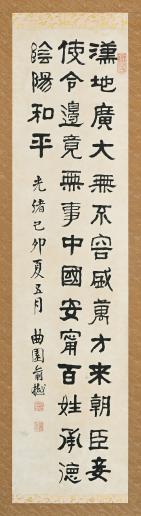 漢地廣大無不容盛萬方來朝臣妾
使令邊竟無事中國安甯百姓承德
陰陽和平
光緒己卯夏五月 曲園俞樾